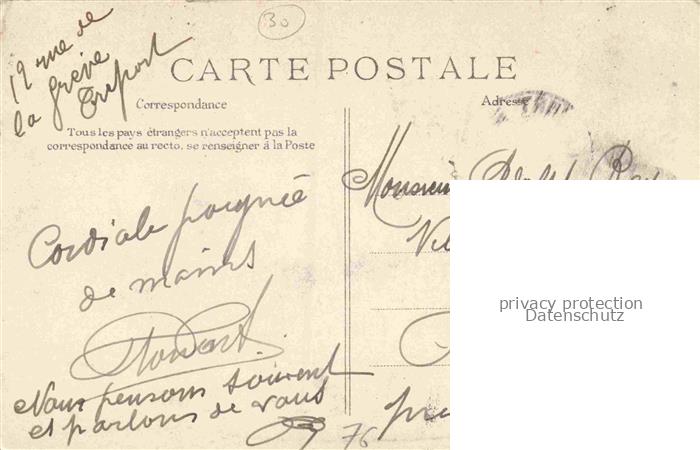 30
19 rue de
la Grève
Tréport
CARTE POSTALE
Correspondance
Adresse
Tous les pays étrangers n'acceptent pas la
correspondance au recto, se renseigner à la Poste
Monsieur
Cordiale poignée
de mains
Nous pensons souvent
et parlons de vous
76
privacy protection
Datenschutz